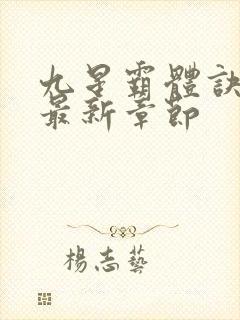 九星霸體訣
最新章節
楊志藝